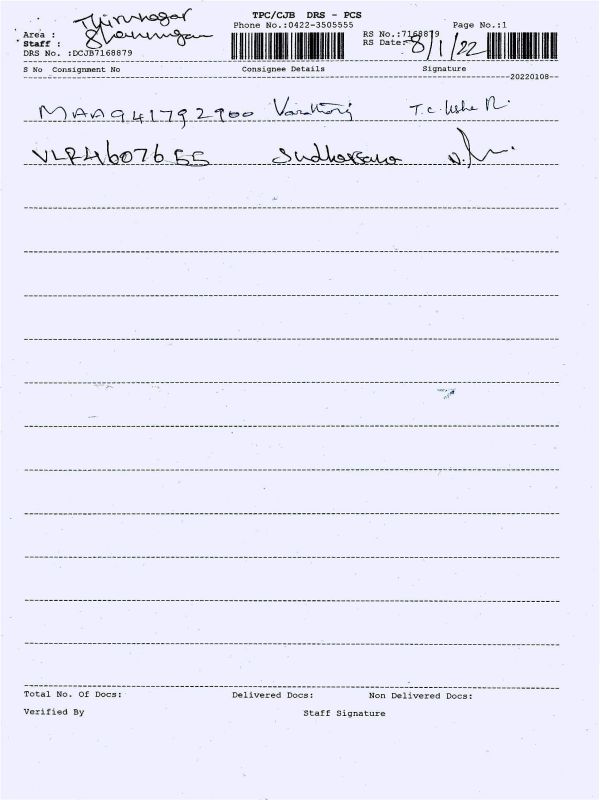 TPC/CJB DRS - PCS
Phone No.:0422-3505555
Page No.:1
Area :
Staff :
DRS No. :DCJB7168879
RS No.:7168879
RS Date: 8/1/22
S No Consignment No Consignee Details Signature
20220108
MAA941792900
VLR4607655 Sudharsana
Total No. Of Docs: Delivered Docs: Non Delivered Docs:
Verified By Staff Signature